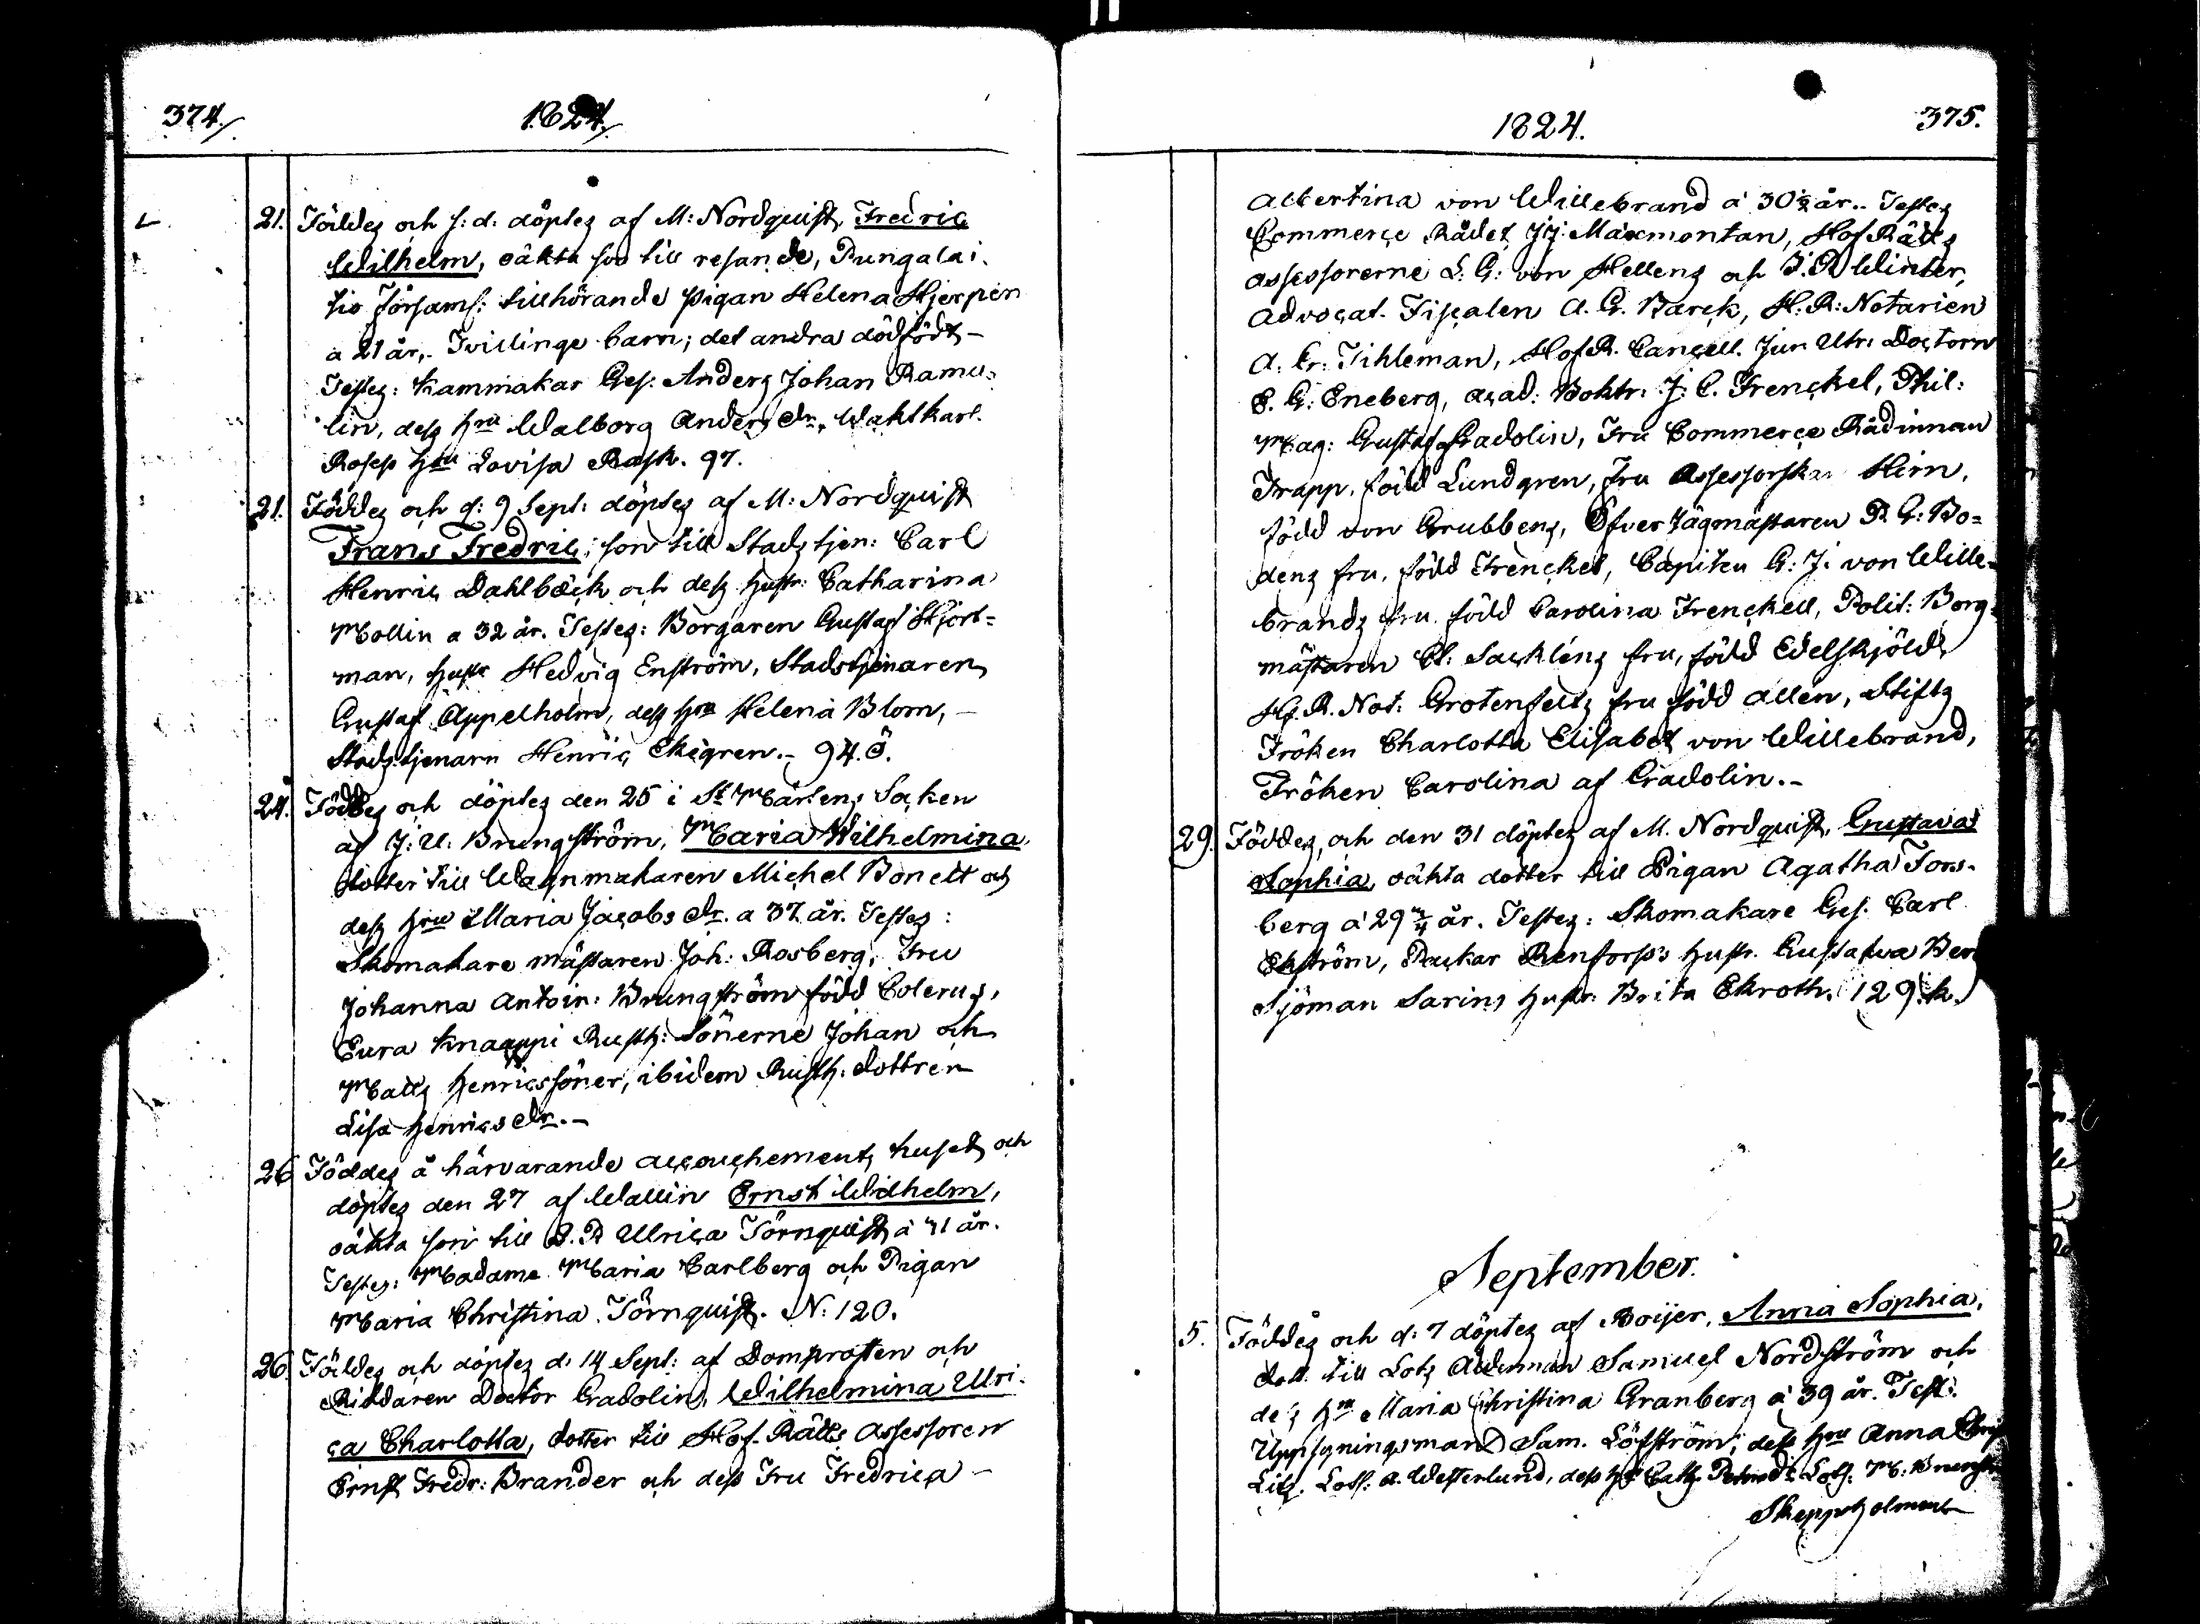 374.
1824.
21. Föddes och s: d: döptes af M: Nordquist, Fredric
Wilhelm, oäkta son till resande, Pungalai-
tio församl: tillhörande pigan Helena Hjerpen
a 21 år, - Tvillinge barn; det andra dödfödt -
Testes: Kammakar Ges: Anders Johan Ramu-
lin, des hru Walborg Anders dr., Waktkarl
hru Lovisa Rask. 97.
21. Föddes och d: 9 Sept: döptes af M: Nordquist
Frans Fredric, son till Stadstjen: Carl
Henric Dahlbäck och des hustr: Catharina
Mollin a 32 år. Testes: Borgaren Gustaf Hjort-
man, hustr Hedvig Enström, Stadstjenaren
Gustaf Appelholm, des hru Helena Blom, -
Stadstjenarn Henric Ekegren. - 94. Ö.
24. Föddes och döptes den 25 i St Mårtens Socken
af J: U: Brungström, Maria Wilhelmina
dotter till Wagnmakaren Michel Bonelt och
des hru Maria Jacobs dr. a 37 år. Testes:
Skomakare mästaren Joh: Rosberg, Fru
Johanna Antoin: Brungström född Colerus,
Eura Knaappi Rusth: Sönerne Johan och
Matts Henricssöner, ibidem Rusth. dottren
Lisa Henrics dr. -
26 Föddes å härvarande accouchements huset och
döptes den 27 af Wallin Ernst Wilhelm,
oäkta son till Ulrica Törnquist, a 41 år.
Testes: Madame Maria Carlberg och Pigan
Maria Christina Törnquist. N: 120.
26. Föddes och döptes d: 14 Sept: af Domprosten och
Riddaren Doctor Gadolin, Wilhelmina Ulri-
ca Charlotta, dotter till Hof-Rätts Assessoren
Ernst Fredr: Brander och des Fru Fredrica -
1824.
375.
Albertina von Willebrand a' 30½ år. - Testes
Commerce Rådet J J: Maxmontan, Hof Rätts
assessorerne L: G: von Hellens och Winter,
Advocat-Fiscalen A. G. Barck, H. R: Notarien
A. Fr: Tihleman, Hof R. Cancell. Jur. Utr: Doctorn
E. G: Eneberg, acad: Boktr. J: C. Frenckel, Phil:
Mag: Gustaf Gadolin, Fru Commerce Rådinnan
Trapp, född Lundgren, Fru Assessorskan Hirn,
född von Grubbens, Öfver Jägmästaren Bo-
dens fru, född Frenckel, Capiten G: J: von Wille-
brands fru, född Carolina Frenckell, Polit: Borg-
mästaren Sackléns fru, född Edelskjöld,
H. R. Not: Grotenfelts fru född Allén, Stifts
Fröken Charlotta Elisabet von Willebrand,
Fröken Carolina af Gadolin. -
29. Föddes, och den 31 döptes af M. Nordquist, Gustava
Sophia, oäkta dotter till Pigan Agatha Fors-
berg a' 29¾ år. Testes: Skomakare Ges: Carl
Ekström, Packar Renfors's hustr. Gustafva Ber
Sjöman Sarins hustr: Brita Ekroth. 129. k.
September.
5. Föddes och d: 7 döptes af Boijer, Anna Sophia,
dott. till Lots Ålderman Samuel Nordström och
des hru Maria Christina Granberg a' 39 år. Test:
Uppsyningsmand Sam. Löfström, dess hru Anna
Lits. Lots: A. Westerlund, dess hr Cath.
Skeppsholmen